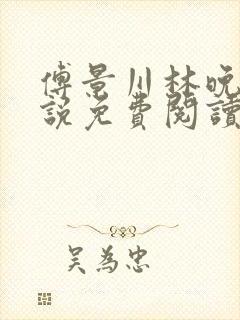 傅景川林晚
說免費閱讀
吴為忠